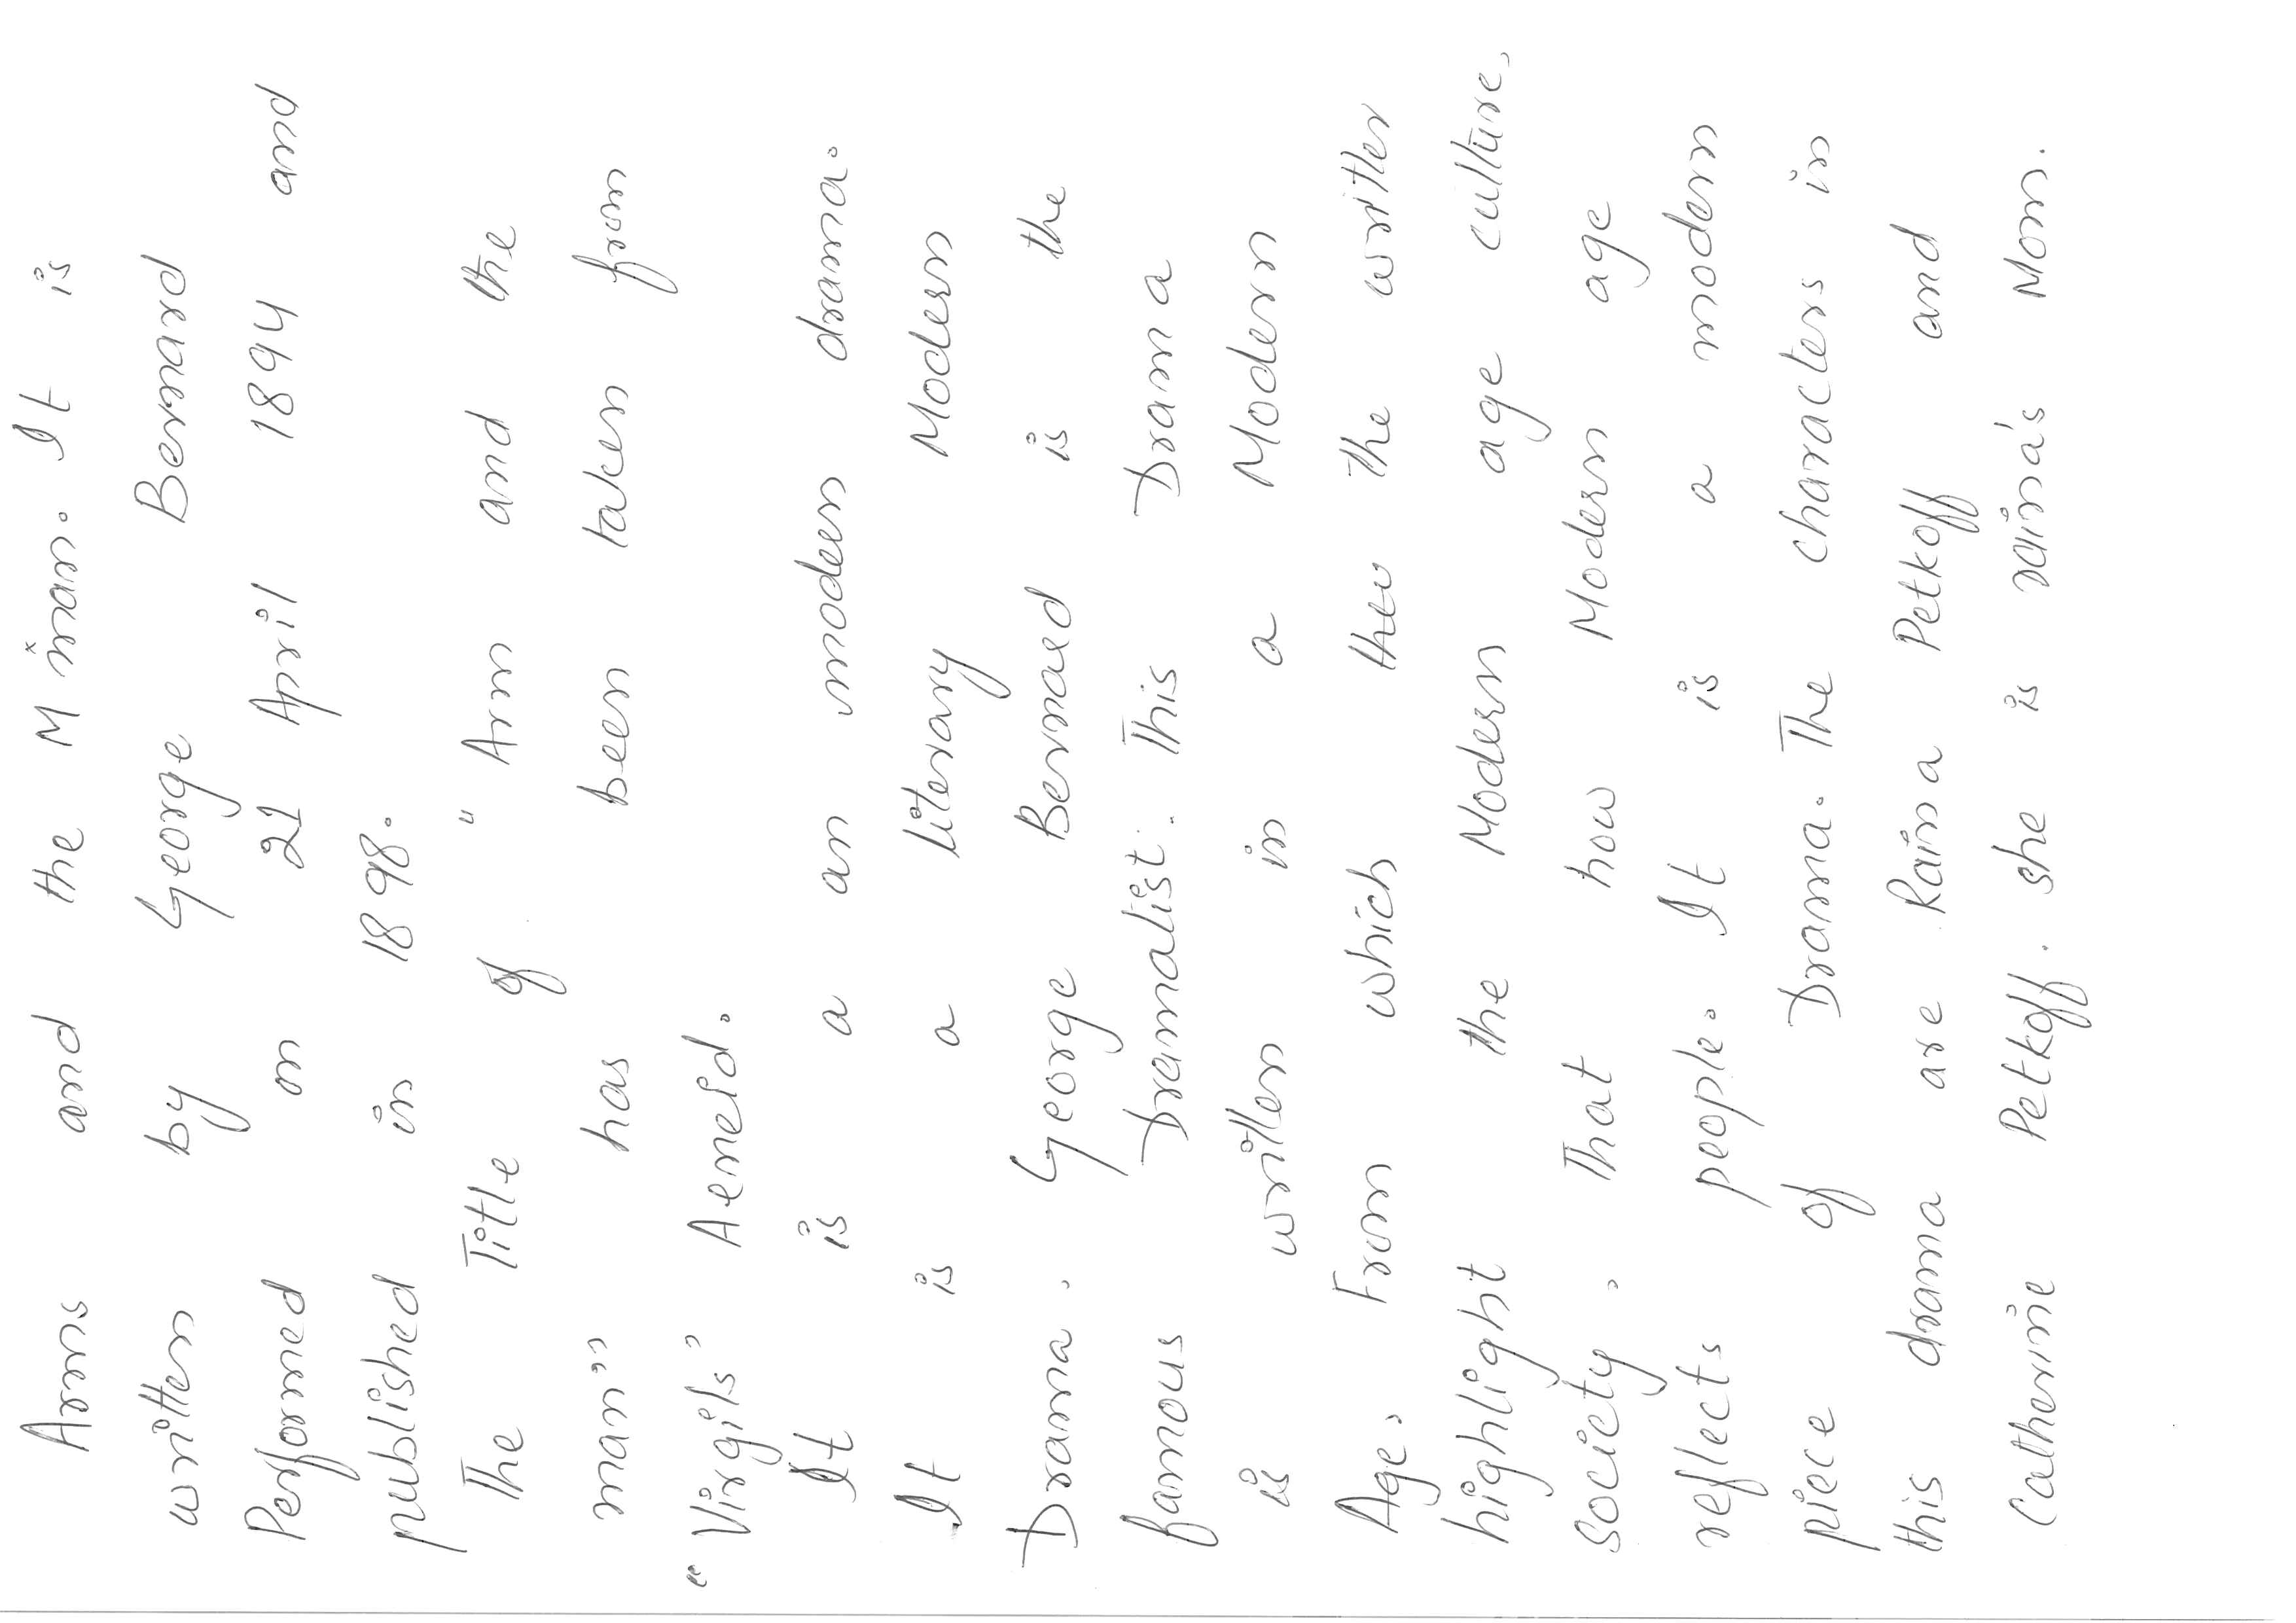 Arms and the M man. It is
written by George Bernard
Performed on 21 April 1894 and
published in 1898.
The Title of "Arm and the
man" has been taken from
"Virgils' Aeneid.
It is a an modern drama.
It is a literary Modern
Drama. George Bernard is the
famous Dramatist. This Drama
is written in a Modern
Age. From which the the writter
highlight the Modern age culture,
society. That how Modern age
reflects people. It is a modern
piece of Drama. The characters in
this drama are Raina Petkoff and
Catherine Petkoff. she is raina's Mom.